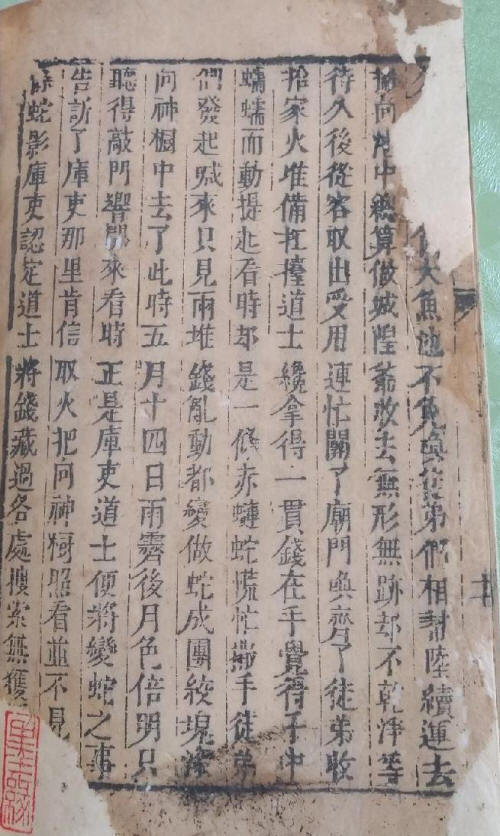 大魚池不免與徒弟們相幫陸續運去
向厨中總算做城隍爺收去無形無跡却不乾淨等
待久後從容取出受用連忙關了廟門喚齊了徒弟收
拾家火堆備扛擡道士纔拿得一貫錢在手覺得手中
蠕蠕而動提起看時却是一條赤蟣蛇慌忙撒手徒弟
們發起喊來只見兩堆錢亂動都變做蛇成團絞塊
向神櫥中去了此時五月十四日雨霽後月色倍明只
聽得敲門響開來看時正是庫吏道士便將變蛇之事
告訴了庫吏那里肯信取火把向神櫥照看並不見
蛇影庫吏認定道士將錢藏過各處搜索無獲